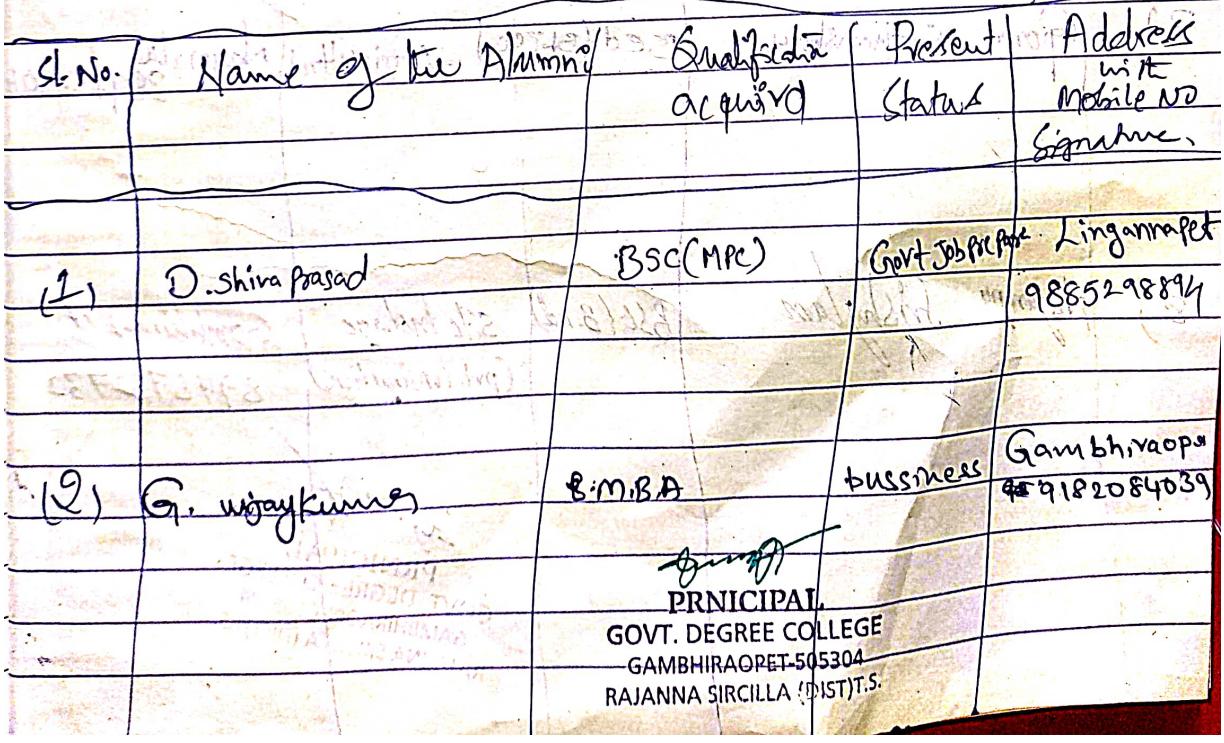 Sl. No. Name of the Alumni Qualification Present Address
acquird Status with
Mobile NO
Signature.
(1) D. Shiva Prasad BSC(MPC) Govt Job prepare Lingannapet
9885298894
(2) G. vijay Kumar B.M.B.A bussiness Gambhiraope
9182084039
PRNICIPAL
GOVT. DEGREE COLLEGE
GAMBHIRAOPET-505304
RAJANNA SIRCILLA (DIST)T.S.